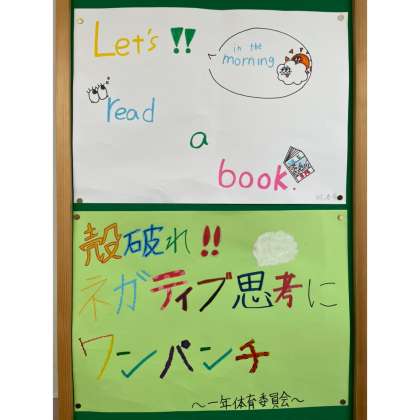 Let's !!
in the
morning
read
a
book.
殻破れ!!
ネガティブ思考に
ワンパンチ
～一年体育委員会～